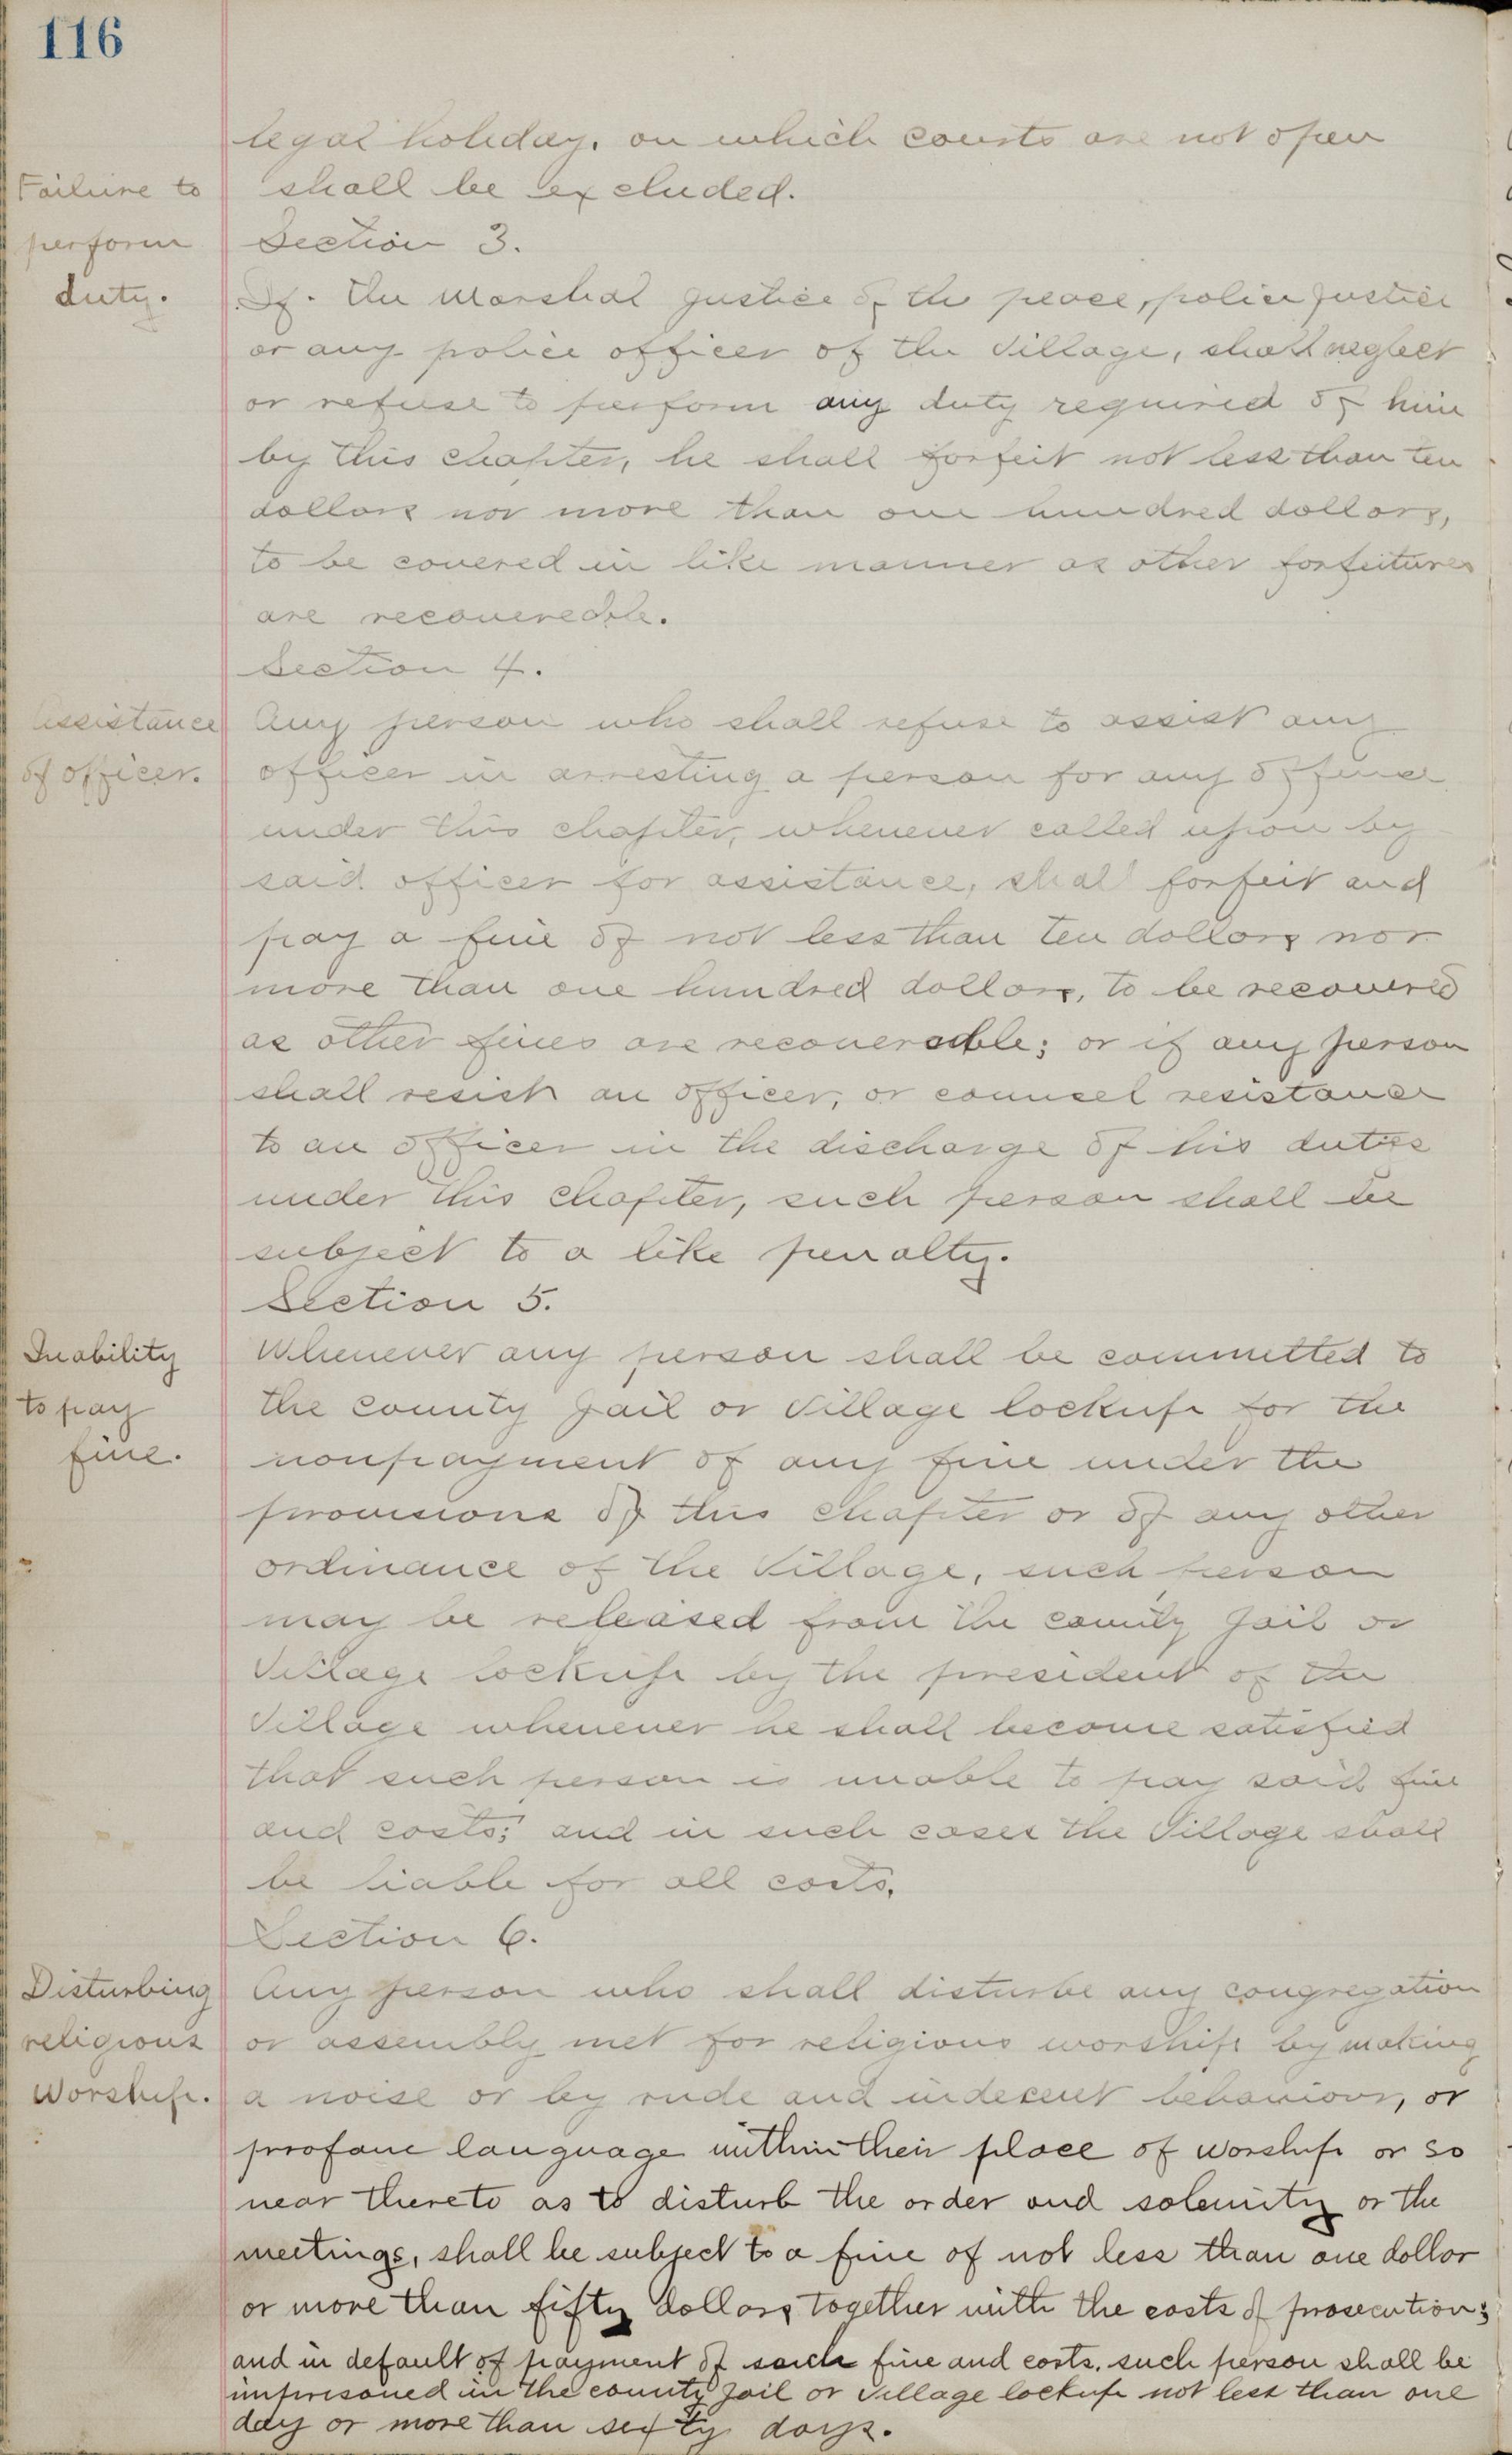 116
legal holiday, on which courts are not open
Failure to
shall be excluded.
perform
Section 3.
duty.
If. the Marshal justice of the peace, police justice
or any police officer of the Village, shall neglect
or refuse to perform any duty required of him
by this chapter, he shall forfeit not less than ten
dollars nor more than one hundred dollars,
to be covered in like manner as other forfeitures
are recoverable.
Section 4.
Assistance
Any person who shall refuse to assist any
of officer.
officer in arresting a person for any offense
under this chapter, whenever called upon by
said officer for assistance, shall forfeit and
pay a fine of not less than ten dollars nor
more than one hundred dollars, to be recovered
as other fines are recoverable; or if any person
shall resist an officer, or counsel resistance
to an officer in the discharge of his duties
under this chapter, such person shall be
subject to a like penalty.
Section 5.
Inability
Whenever any person shall be committed to
to pay
the county jail or Village lockup for the
fine.
nonpayment of any fine under the
provisions of this chapter or of any other
ordinance of the Village, such person
may be released from the county jail or
Village lockup by the president of the
Village whenever he shall become satisfied
that such person is unable to pay said fine
and costs; and in such cases the Village shall
be liable for all costs.
Section 6.
Disturbing
Any person who shall disturbe any congregation
religious
or assembly met for religious worship by making
Worship.
a noise or by rude and indecent behaviour, or
profane language within their place of worship or so
near thereto as to disturb the order and solemnity or the
meetings, shall be subject to a fine of not less than one dollar
or more than fifty dollars together with the costs of prosecution;
and in default of payment of such fine and costs, such person shall be
imprisoned in the county jail or Village lockup not less than one
day or more than sixty days.